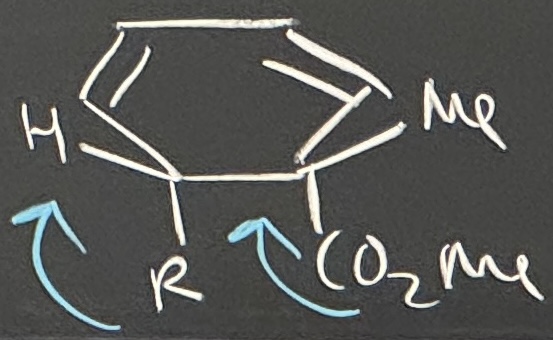 H
Me
R
CO₂Me